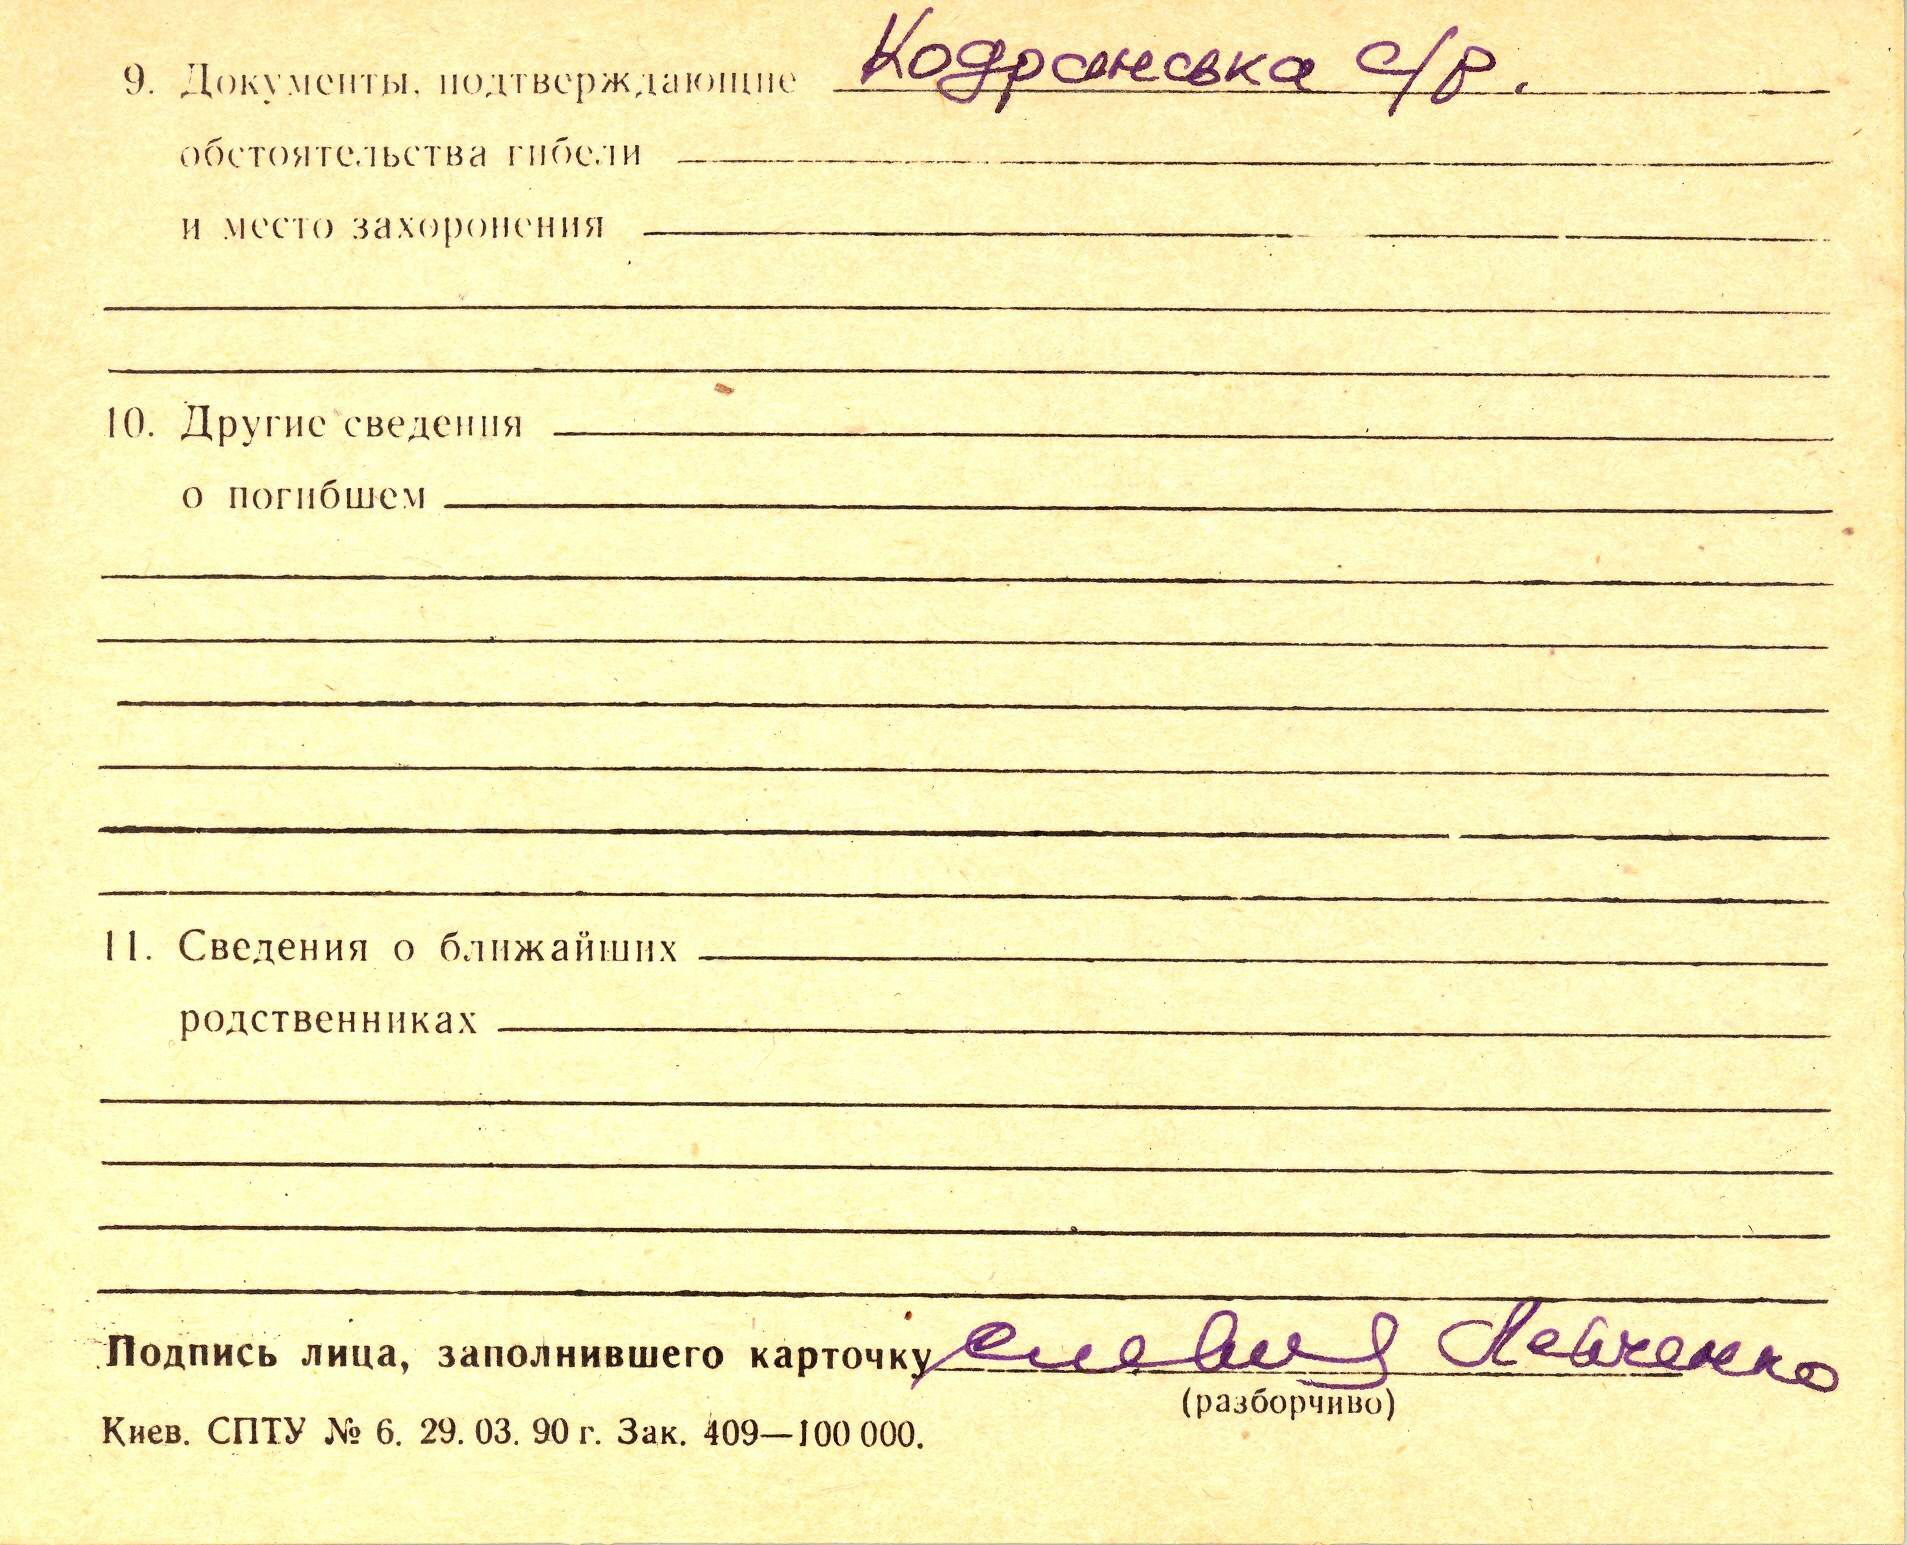 9. Документы, подтверждающие Кодранська с/р.
обстоятельства гибели
и место захоронения
10. Другие сведения
о погибшем
11. Сведения о ближайших
родственниках
Подпись лица, заполнившего карточку
(разборчиво)
Киев. СПТУ № 6. 29. 03. 90 г. Зак. 409—100 000.